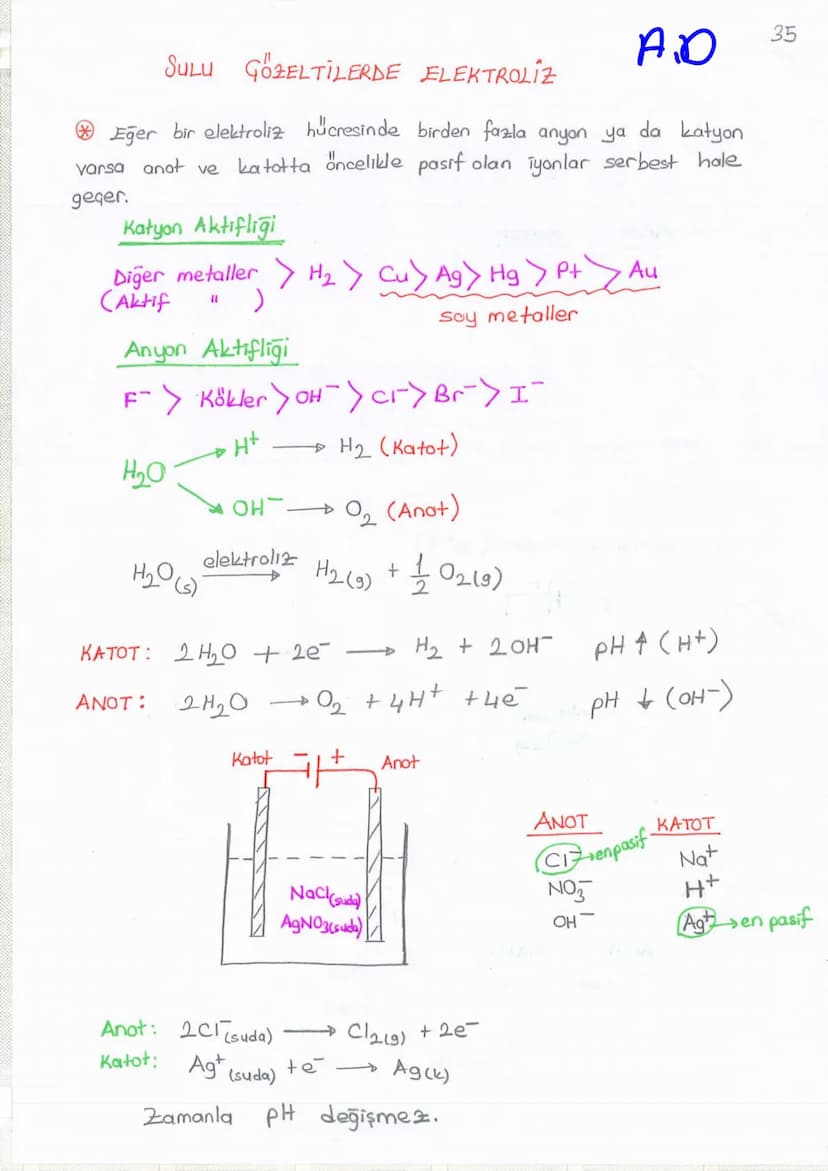 35
A.D
SULU ÇÖZELTİLERDE ELEKTROLİZ
⊛ Eğer bir elektroliz hücresinde birden fazla anyon ya da katyon
varsa anot ve katotta öncelikle pasif olan iyonlar serbest hale
geçer.
Katyon Aktifliği
Diğer metaller > H₂ > Cu > Ag > Hg > Pt > Au
(Aktif " )
soy metaller
Anyon Aktifliği
F⁻ > Kökler > OH⁻ > Cl⁻ > Br⁻ > I⁻
H₂O
H⁺ → H₂ (Katot)
OH⁻ → O₂ (Anot)
H₂O(s) elektroliz → H₂(g) + 1/2 O₂(g)
KATOT: 2H₂O + 2e⁻ → H₂ + 2OH⁻ pH ↑ (H⁺)
ANOT: 2H₂O → O₂ + 4H⁺ + 4e⁻ pH ↓ (OH⁻)
Katot − + Anot
NaCl(suda)
AgNO₃(suda)
ANOT KATOT
Cl⁻ → en pasif Na⁺
NO₃⁻ H⁺
OH⁻ Ag⁺ → en pasif
Anot: 2Cl⁻(suda) → Cl₂(g) + 2e⁻
Katot: Ag⁺(suda) + e⁻ → Ag(k)
Zamanla pH değişmez.